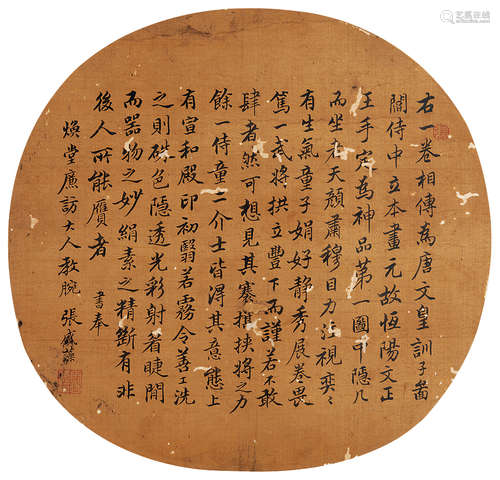 右一卷相傳為唐文皇訓子啚
閻侍中立本畫元故恆陽文正
王手定為神品第一圖中隱几
而坐者天顏肅穆目力注視奕々
有生氣童子娟好靜秀展卷畏
篤一武將拱立豐下而謹若不敢
肆者然可想見其褰撻挾將之力
餘一侍童二介士皆得其意態上
有宣和殿印初翳若霧令善工洗
之則硃色隱透光彩射著睫間
而器物之妙絹素之精斷有非
後人所能贋者 書奉
煥堂廉訪大人教腕 張